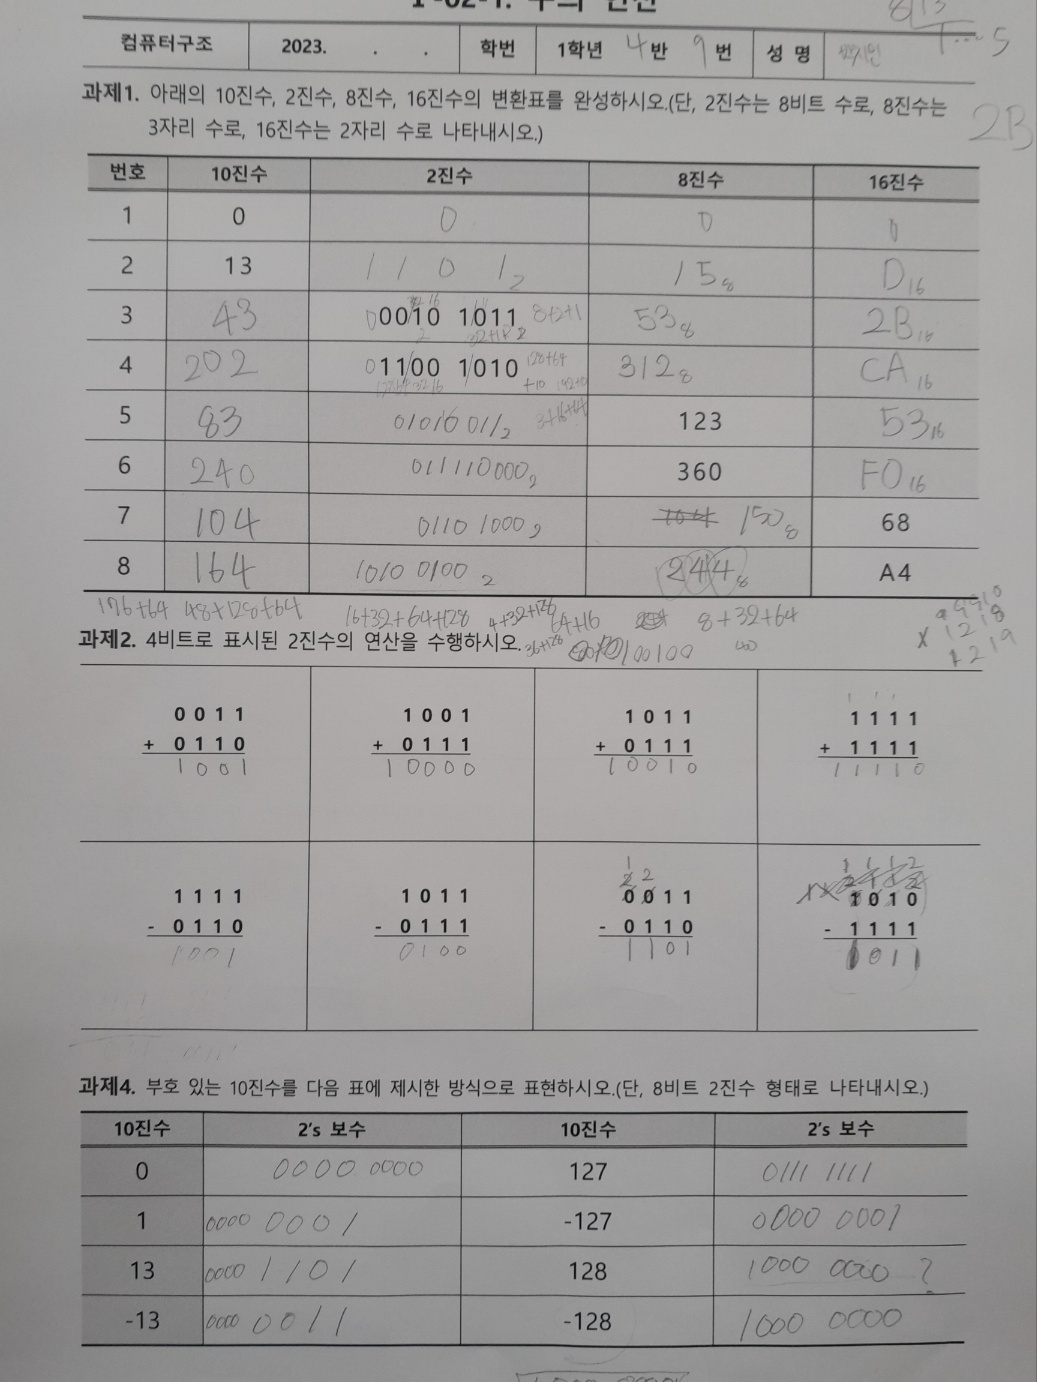 컴퓨터구조 2023. . . 학번 1학년 4 반 9 번 성 명
8 13
1 ... 5
과제1. 아래의 10진수, 2진수, 8진수, 16진수의 변환표를 완성하시오.(단, 2진수는 8비트 수로, 8진수는
3자리 수로, 16진수는 2자리 수로 나타내시오.)
2B
번호 10진수 2진수 8진수 16진수
1 0 0 0 0
2 13 1 1 0 1₂ 15₈ D₁₆
3 43 00010 1011 8+2+1 53₈ 2B₁₆
4 202 01100 1010 128+64 +10 312₈ CA₁₆
5 83 01010 011₂ 3+16+64 123 53₁₆
6 240 011110000₂ 360 F0₁₆
7 104 0110 1000₂ 150₈ 68
8 164 1010 0100₂ 244₈ A4
176+64 48+128+64 16+32+64+128 4+32+128 64+16 8+32+64
과제2. 4비트로 표시된 2진수의 연산을 수행하시오. 36+128 100100
0 0 1 1 1 0 0 1 1 0 1 1 1 1 1 1
+ 0 1 1 0 + 0 1 1 1 + 0 1 1 1 + 1 1 1 1
1 0 0 1 1 0 0 0 0 1 0 0 1 0 1 1 1 1 0
1 1 1 1 1 0 1 1 0 0 1 1 1 0 1 0
- 0 1 1 0 - 0 1 1 1 - 0 1 1 0 - 1 1 1 1
1 0 0 1 0 1 0 0 1 1 0 1 0 1 1
과제4. 부호 있는 10진수를 다음 표에 제시한 방식으로 표현하시오.(단, 8비트 2진수 형태로 나타내시오.)
10진수 2's 보수 10진수 2's 보수
0 0000 0000 127 0111 1111
1 0000 0001 -127 0000 0001
13 0000 1101 128 1000 0000 ?
-13 0000 0011 -128 1000 0000